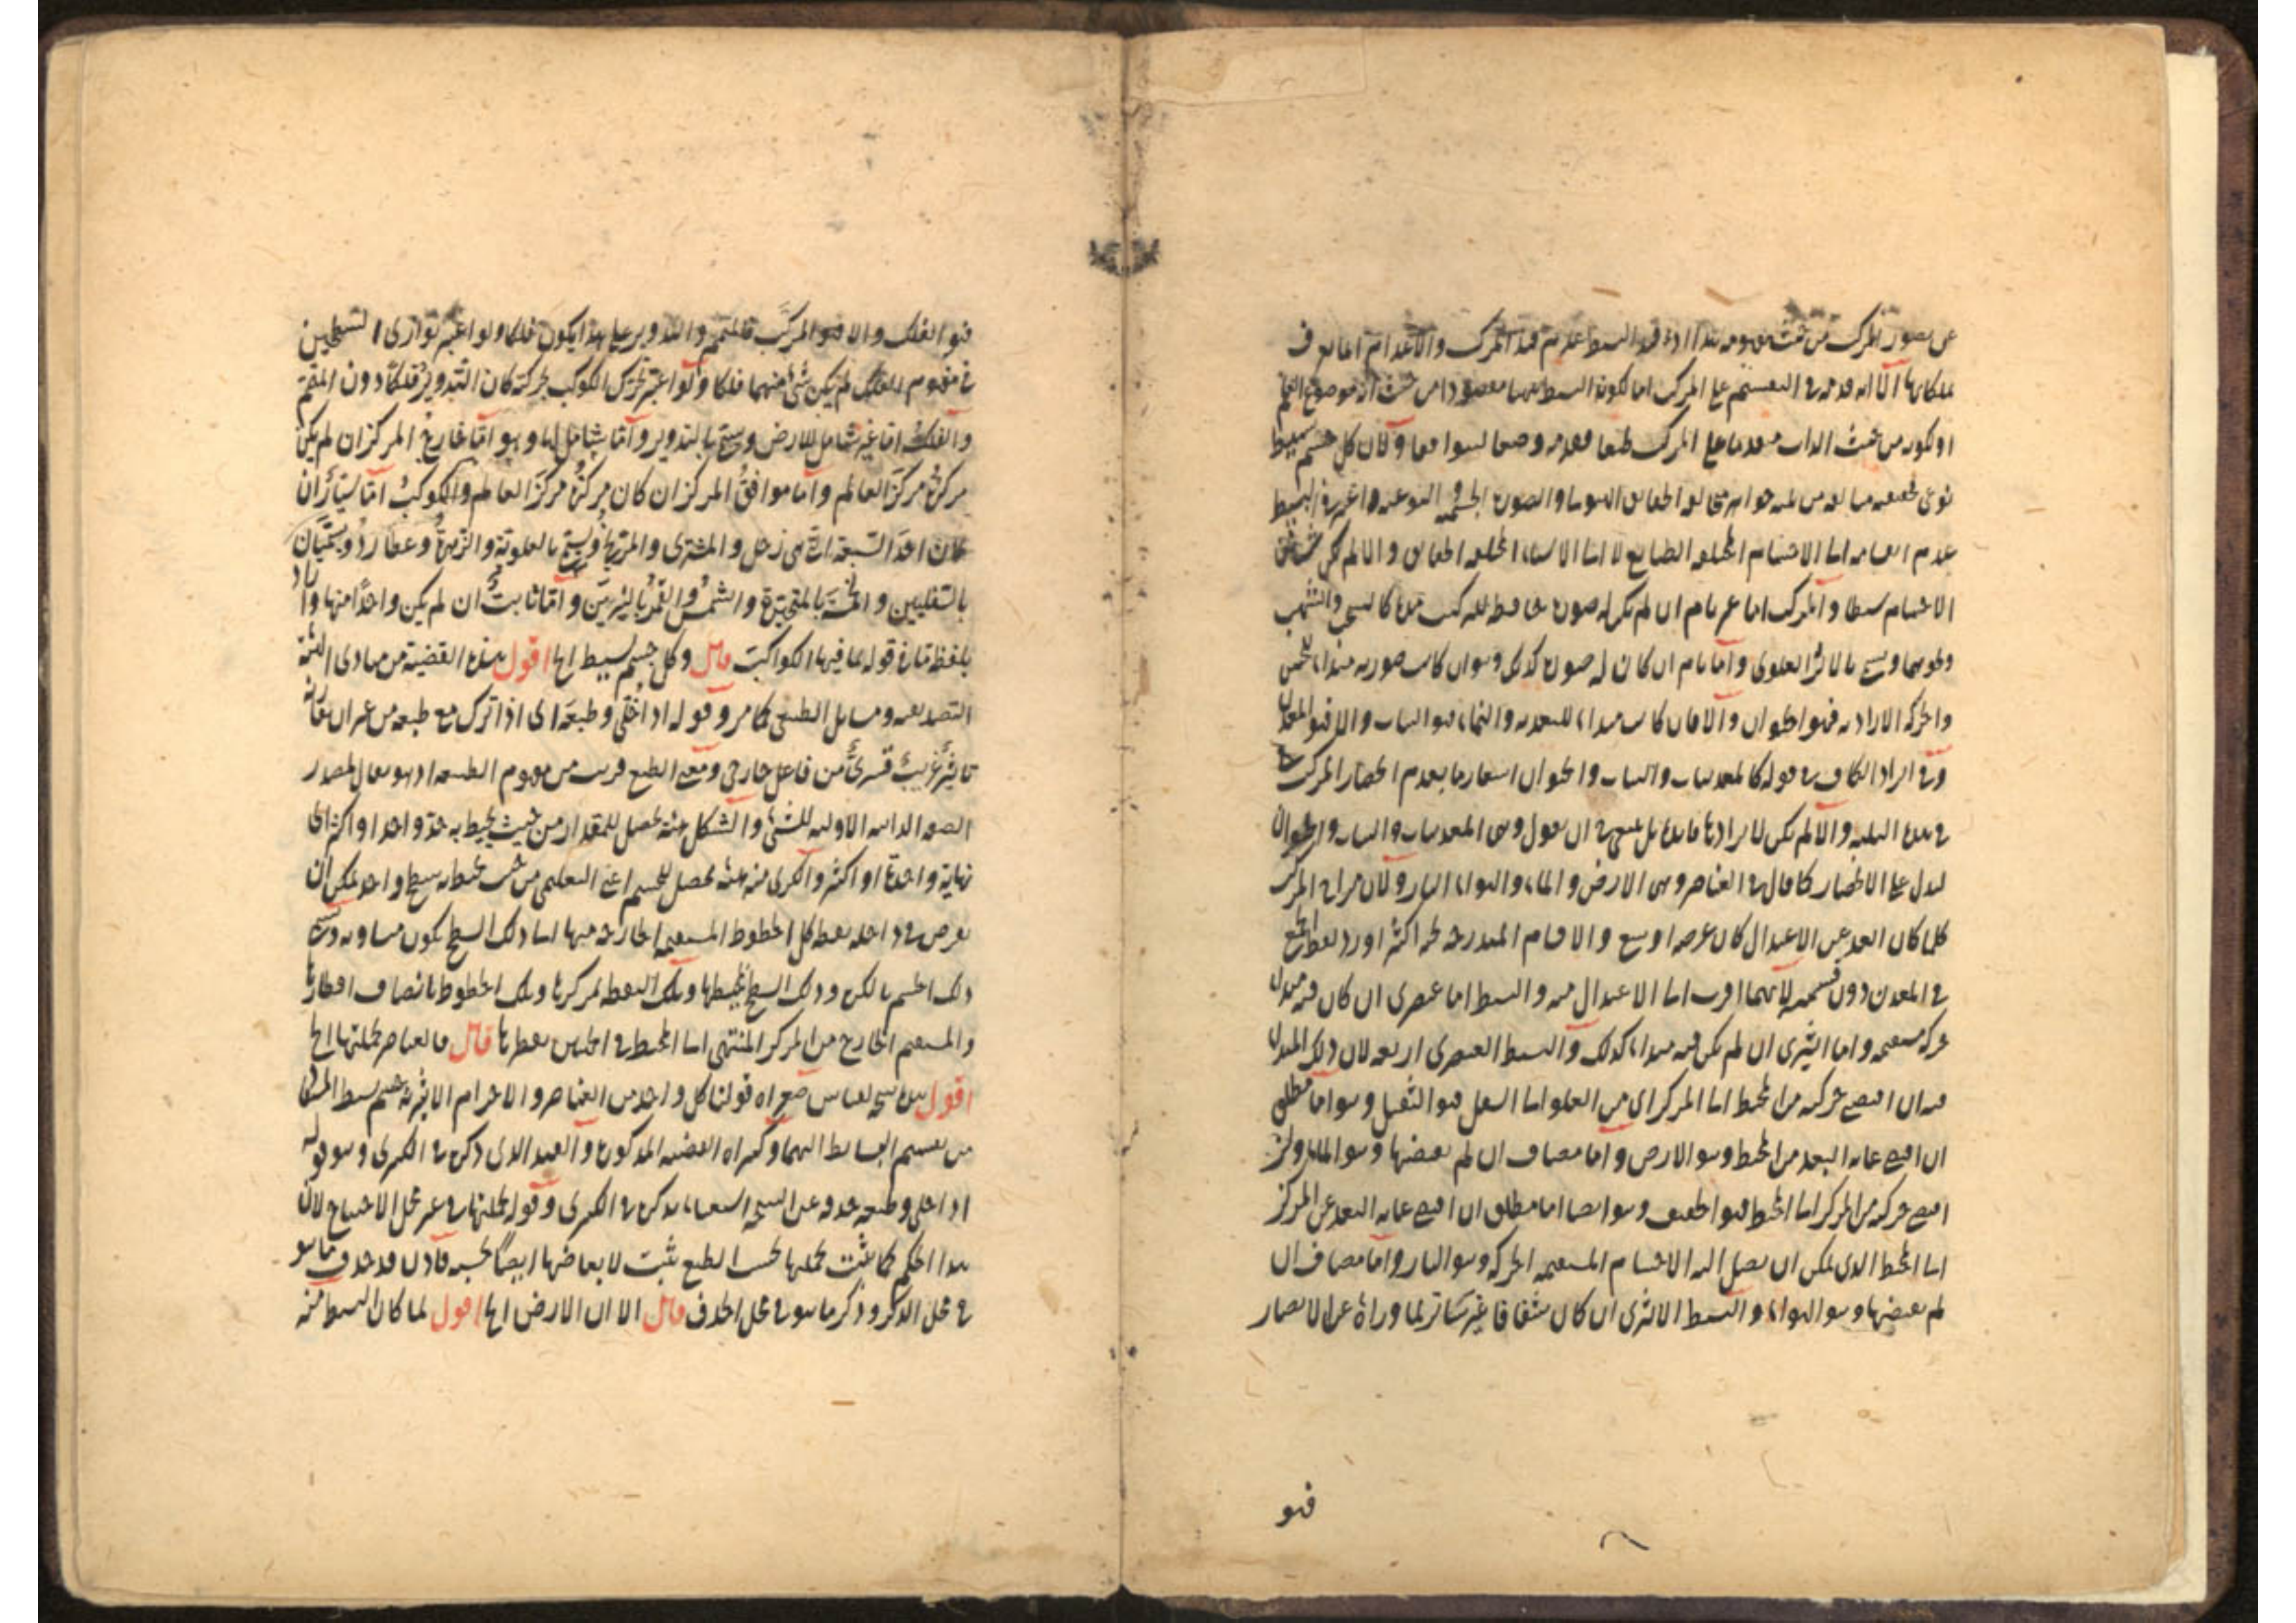 عن تصور المركب من حيث مفهومه
ملكاتها الا انه قدمه في التقسيم على المركب اما لكونه البسيط من حيث انه موضوع العلم
او لكونه من حيث الذات متقدما على المركب طبعا فقدمه وضعا ليتوافقا ولان كل جسم بسيط
عدم الى الاجسام المختلفة الطبايع لا الى المختلفة الحقايق والا لم يكن
الاجسام بسيطا والمركب اما غير تام ان لم يكن له صورة حافظة لتركيبه كالسحب والشهب
ونحوهما ويسمى بالاثار العلوى واما تام ان كان له صورة كذلك وهو ان كانت صورته مبداء للحس
والحركة الارادية فهو الحيوان والا فان كانت مبداء للتغذية والنماء فهو النبات والا فهو المعدن
وفي ايراد الكاف في قوله كالمعدنيات والنبات والحيوان اشعار ما بعدم انحصار المركب
في هذه الثلثة والا لم يكن لايرادها فايدة بل ينبغي ان يقول وهي المعدنيات والنبات والحيوان
ليدل على الانحصار كما قال في العناصر وهي الارض والماء والهواء والنار ولان مزاج المركب
كلما كان ابعد عن الاعتدال كان عرضه اوسع والاقسام المندرجة تحته اكثر اورد بلفظ الجمع
في المعدن دون قسيميه لانهما اقرب الى الاعتدال منه والبسيط اما عنصرى ان كان فيه مبداء
حركة مستقيمة واما اثيرى ان لم يكن فيه مبداء كذلك والبسيط العنصرى اربعة لان ذلك المبداء
فيه ان اقتضى حركته من المحيط الى المركز اى من العلو الى السفل فهو الثقيل وهو اما مطلق
ان اقتضى غاية البعد من المحيط وهو الارض واما مضاف ان لم يقتضها وهو الماء وان
اقتضى حركته من المركز الى المحيط فهو الخفيف وهو ايضا اما مطلق ان اقتضى غاية البعد عن المركز
الى المحيط الذى يمكن ان يصل اليه الاجسام المستقيمة الحركة وهو النار واما مضاف ان
لم يقتضها وهو الهواء والبسيط الاثيرى ان كان شفافا غير ساتر لما وراه عن الابصار
فهو
فهو الفلك والا فهو المركب فالمتمم والتدوير على هذا يكون فلكا ولو اعتبر توازى السطحين
في مفهوم الفلك لم يكن شئ منهما فلكا ولو اعتبر تحرك الكوكب بحركته كان التدوير فلكا دون المتمم
والفلك اما غير شامل للارض ويسمى بالتدوير واما شامل لها وهو اما خارج المركز ان لم يكن
مركزه مركز العالم واما موافق المركز ان كان مركزه مركز العالم والكوكب اما سيار ان
كان احد السبعة التي هي زحل والمشترى والمريخ ويسمى بالعلوية والزهرة وعطارد ويسميان
بالسفليين والخمسة بالمتحيرة والشمس والقمر بالنيرين واما ثابت ان لم يكن واحدا منها واراد
بلفظة ما في قوله بما فيها الكواكب قال وكل جسم بسيط الخ اقول هذه القضية من مبادى الهيئة
التصديقية ومسايل الطبيعى كما مر وقوله اذا خلى وطبعه اى اذا ترك مع طبعه من غير ان يقارنه
تاثير غريب قسرى من فاعل خارجى ومعنى الطبع قريب من مفهوم الطبيعة اذ هو يقال لمصدر
الصفة الذاتية الاولية للشئ والشكل هيئة تحصل للمقدار من حيث يحيط به حد واحد او اكثر اى
نهاية واحدة او اكثر والكرى منه هيئة تحصل للجسم اعنى التعليمى من حيث يحيط به سطح واحد يمكن ان
يفرض في داخله نقطة كل الخطوط المستقيمة الخارجة منها الى ذلك السطح يكون متساوية ويسمى
ذلك الجسم بالكرة وذلك السطح بمحيطها وتلك النقطة بمركزها وتلك الخطوط بانصاف اقطارها
والمستقيم الخارج من المركز المنتهى الى المحيط في الجانبين بقطرها قال فالعناصر بجملتها الخ
اقول هذه نتيجة لقياس صغراه قولنا كل واحد من العناصر والاجرام الاثيرية جسم بسيط
من تقسيم البسايط اليهما وكبراه القضية المذكورة والقيد الذى ذكره في الكبرى وهو قوله
اذا خلى وطبعه حذفه عن النتيجة استغناء بذكره في الكبرى وقوله بجملتها في غير محل الاحتياج لان
هذا الحكم كما يثبت بجملتها بحسب الطبع يثبت لابعاضها ايضا بحسبه فاذن قد حذف ما هو
في محل الذكر وذكر ما هو في محل الحذف قال الا ان الارض الخ اقول لما كان البسيط منه